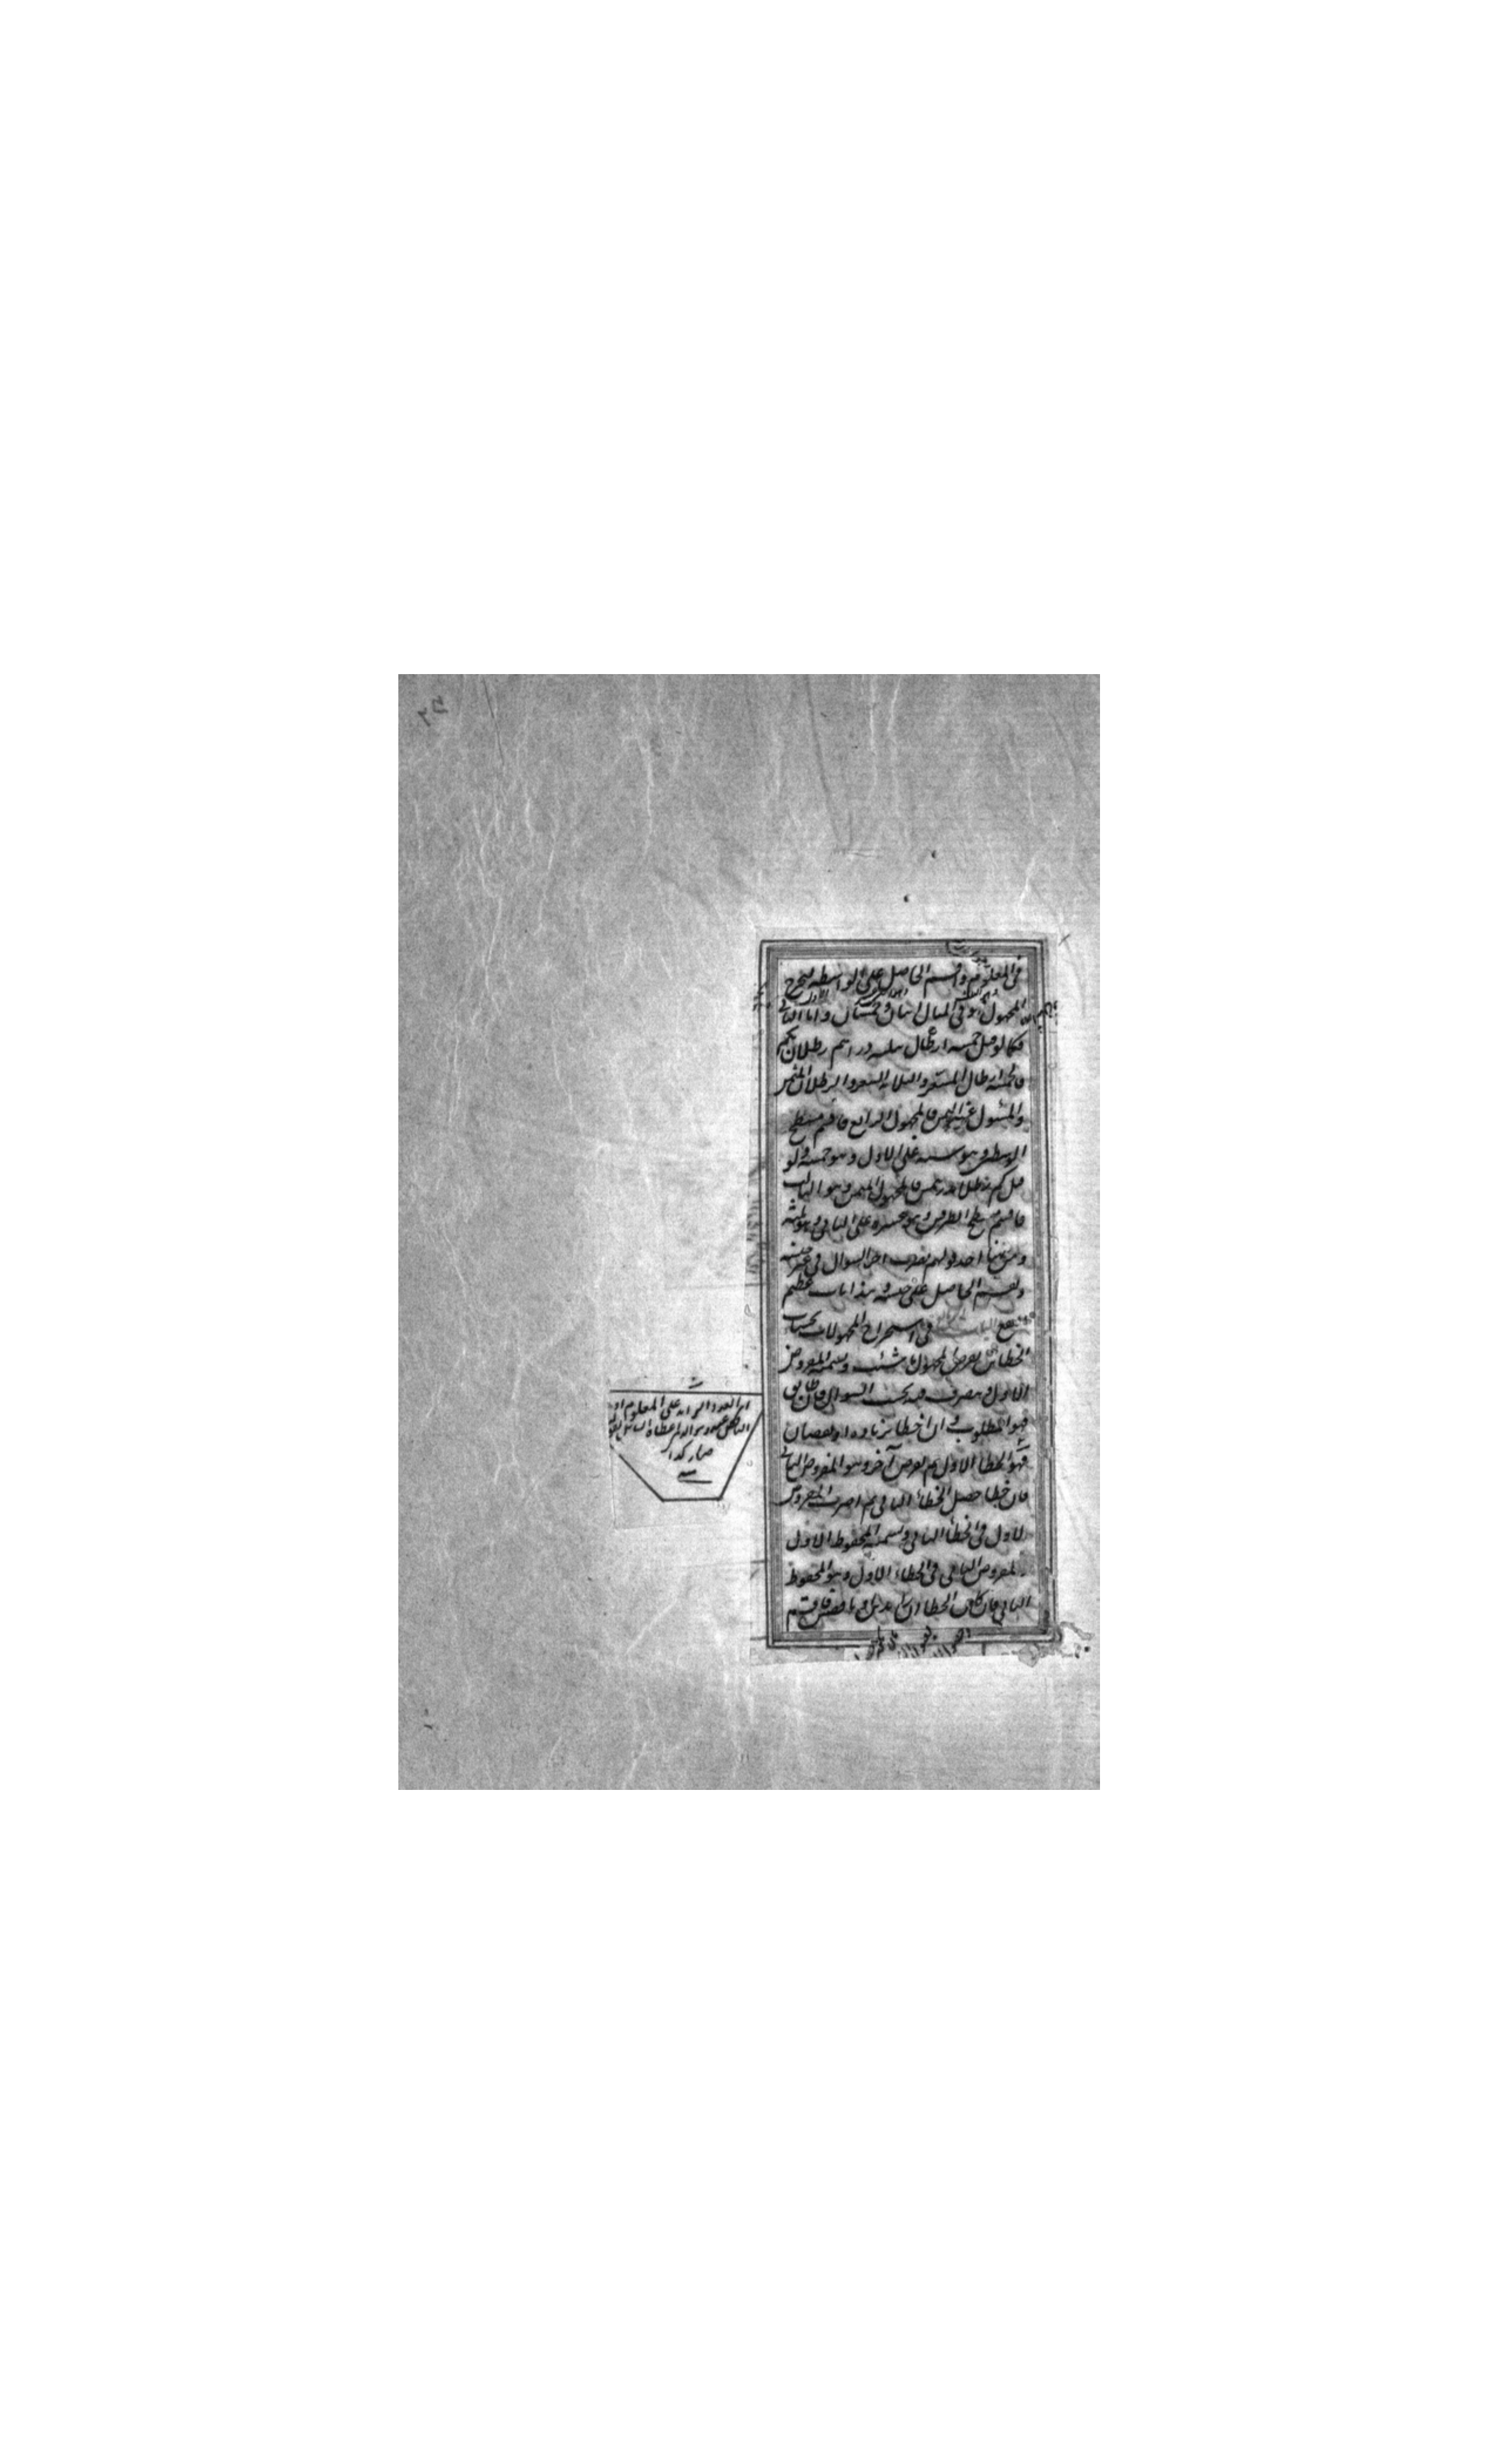 في المعلوم واقسم الحاصل على الواسطة ليخرج
المجهول فهو في المثال اثنان وخمسان واما الثاني
فكما لو قيل خمسة ارطال بثلثة دراهم رطلان بكم
فالخمسة ارطال المسعر والثلاثة السعر والرطلان المثمن
والمسئول عنه الثمن فالمجهول الرابع فاقسم مسطح
الوسطين وهو ستة على الاول وهو خمسة ولو
قيل كم رطلا بدرهمين فالمجهول المثمن وهو الثالث
فاقسم مسطح الطرفين وهو عشرة على الثاني وهو ثلثة
ومن هنا اخذ قولهم تضرب آخر السؤال في غير جنسه
وتقسم الحاصل على جنسه وهذا باب عظيم
النفع الباب في استخراج المجهولات بحساب
الخطائين تفرض المجهول ما شئت وتسميه المفروض
الاول وتتصرف فيه بحسب السؤال فان طابق
فهو المطلوب وان اخطا بزيادة او نقصان
فهو الخطا الاول ثم تفرض آخر وهو المفروض الثاني
فان اخطا حصل الخطا الثاني ثم اضرب المفروض
الاول في الخطا الثاني وتسميه المحفوظ الاول
والمفروض الثاني في الخطا الاول وهو المحفوظ
الثاني فان كان الخطاان زايدين او ناقصين فاقسم
العدد الزايد على المعلوم
صار كذا